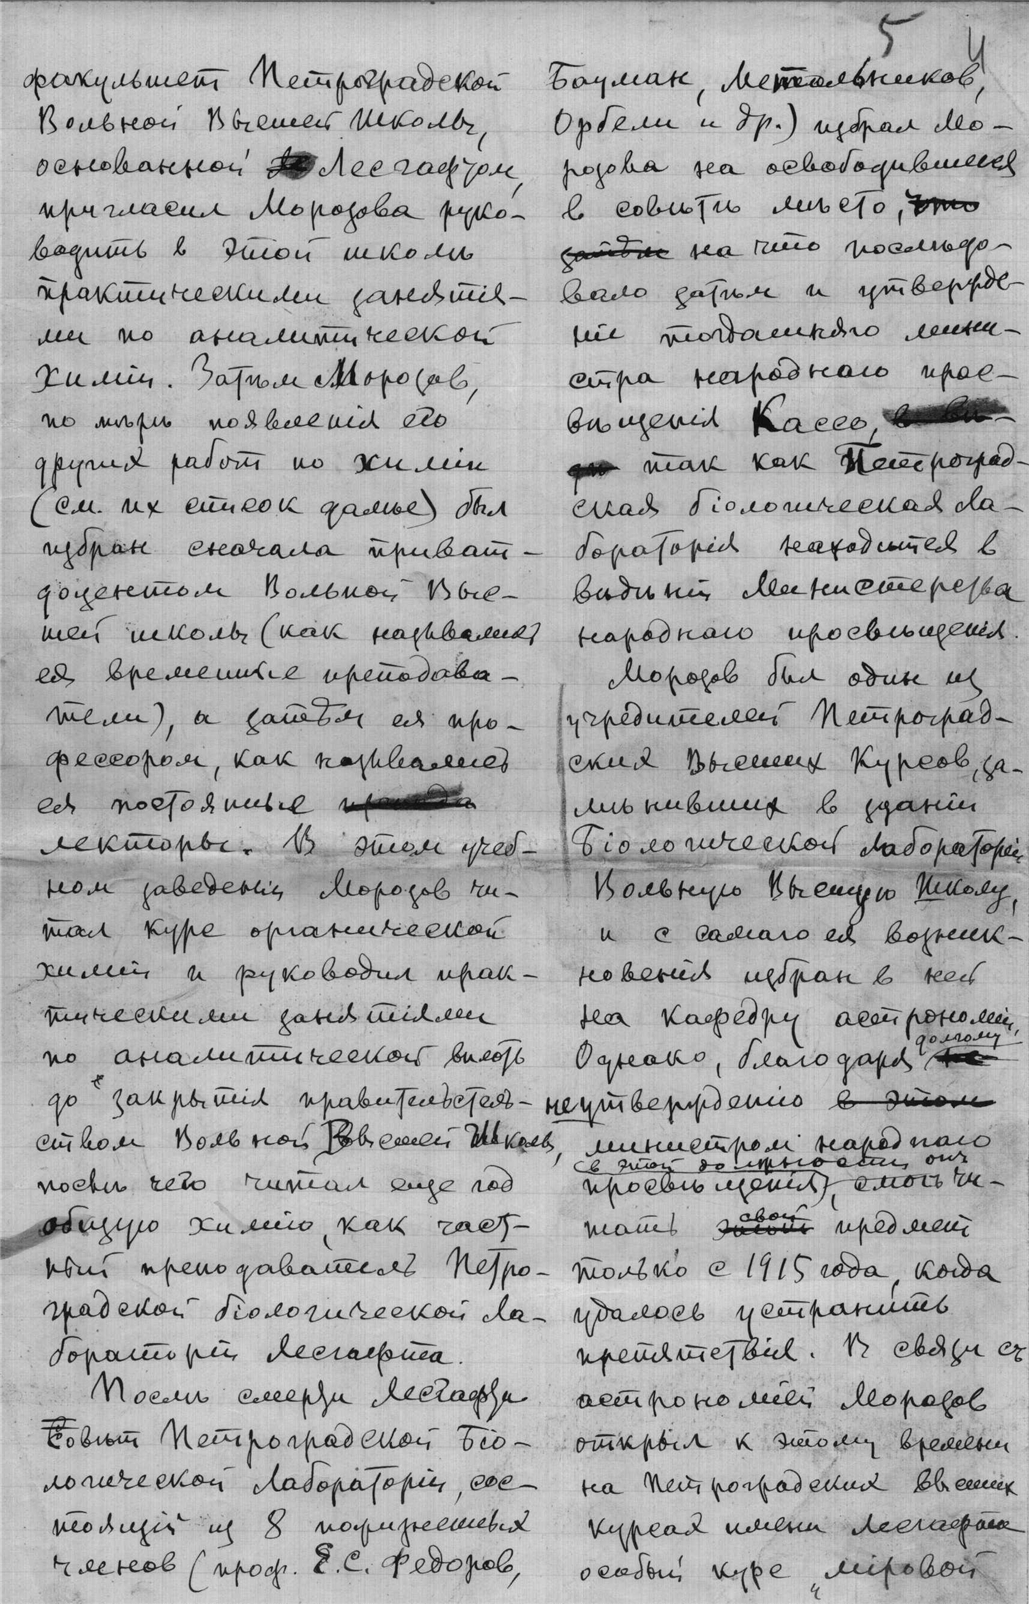 5
4
факультет Петроградской
Вольной Высшей Школы,
основанной Лесгафтом,
пригласил Морозова руко-
водить в этой школѣ
практическими занятія-
ми по аналитической
химіи. Затѣм Морозов,
по мѣрѣ появленія его
других работ по химіи
(см. их список далѣе) был
избран сначала приват-
доцентом Вольной Выс-
шей школы (как назывались
ея временные преподава-
тели), а затѣм ея про-
фессором, как назывались
ея постоянные
лекторы. В этом учеб-
ном заведеніи Морозов чи-
тал курс органической
химіи и руководил прак-
тическими занятіями
по аналитической вплоть
до закрытія правительствеь-
ством Вольной Высшей Школы,
послѣ чего читал еще год
общую химію, как част-
ный преподаватель Петро-
градской біологической ла-
бораторіи Лесгафта.
Послѣ смерти Лесгафта
Совѣт Петроградской Біо-
логической Лабораторіи, сос-
тоящій из 8 пожизненных
членов (проф. Е.С. Федоров,
Бауман, Метальников,
Орбели и др.) избрал Мо-
розова на освободившееся
в совѣтѣ мѣсто, что
затѣм на что послѣдо-
вало затѣм и утвержде-
ніе тогдашняго мини-
стра народнаго прос-
вѣщенія Кассо,
так как Петроград-
ская біологическая ла-
бораторія находится в
вѣдѣніи Министерства
народнаго просвѣщенія.
Морозов был один из
учредителей Петроград-
ских Высших Курсов, за-
мѣнивших в зданіи
Біологической Лабораторіи
Вольную Высшую Школу,
и с самаго ея возник-
новенія избран в ней
на кафедру астрономіи,
Однако, благодаря долгому
неутвержденію в этом
министром народнаго
в этой должности он
просвѣщенія), смогъ чи-
тать свой предмет
только с 1915 года, когда
удалось устранить
препятствія. В связи съ
астрономіей Морозов
открыл к этому времени
на Петроградских Высших
курсах имени Лесгафта
особый курс „міровой